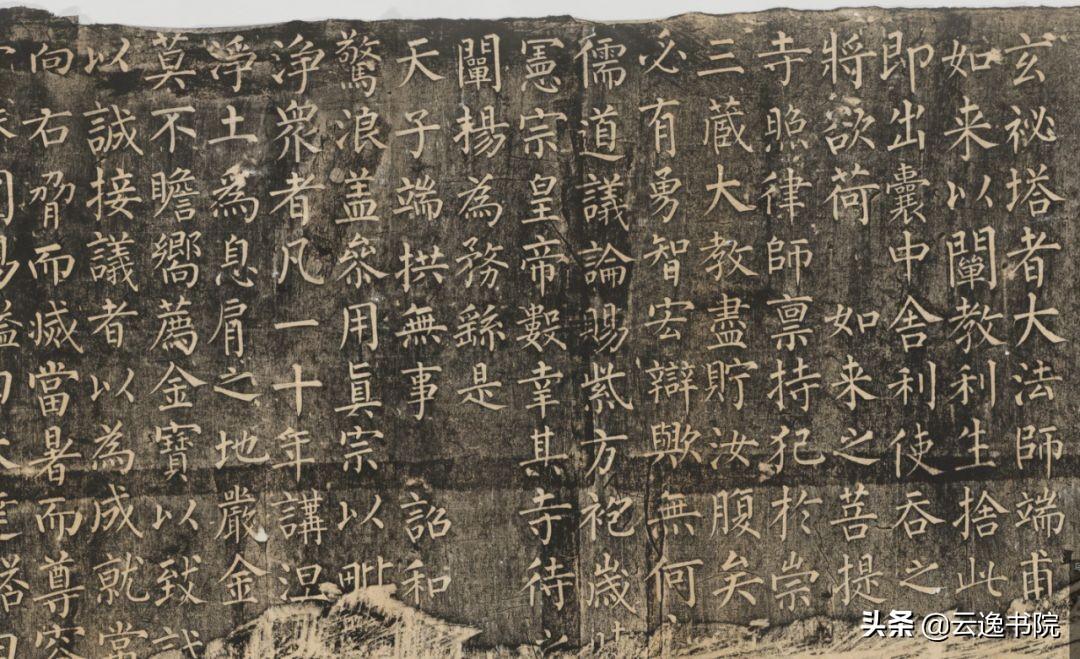 玄祕塔者大法師端甫
如来以闡教利生捨此
即出囊中舍利使吞之
將欲荷 如来之菩提
寺照律師禀持犯於崇
三蔵大教盡貯汝腹矣
必有勇智宏辯歟無何
儒道議論賜紫方袍歳時
憲宗皇帝數幸其寺待之
闡揚為務繇是
天子端拱無事 詔和
驚浪盖參用真宗以毗
浄衆者凡一十年講涅
浄土為息肩之地嚴金
莫不瞻嚮薦金寶以致誠
以誠接議者以為成就常
向右脅而滅當暑而尊容
头条 @云逸书院